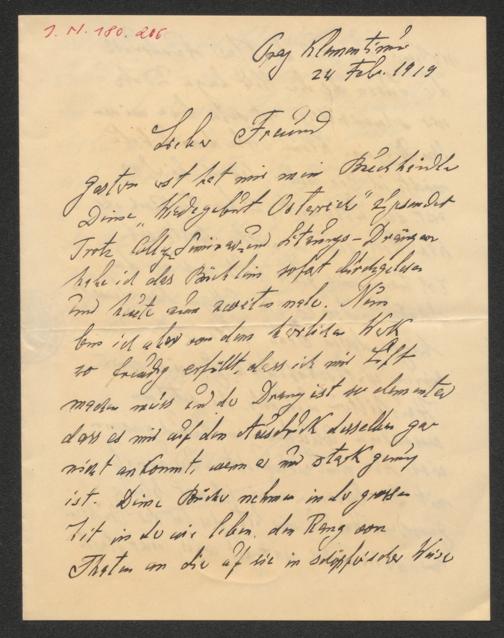 I. N. 180.206
Prag Klementinum
24 Feb. 1919
Lieber Freund
Gestern erst hat mir mein Buchhändler
Deine „Wiedergeburt Österreich" abgesendet
Trotz Colleg Seminar und Sitzungs-Drängen
habe ich das Büchlein sofort
und heute zum zweiten male. Nun
bin ich aber von dem herrlichen Werk
so freudig erfüllt, dass ich mir Luft
machen muss und der Drang ist so elementar
dass es mir auf den Ausdruck desselben gar
nicht ankommt, wenn er nur stark genug
ist. Deine Bücher nehmen in der grossen
Zeit in der wir leben, den Rang von
Thaten an die auf sie in schöpferischer Weise